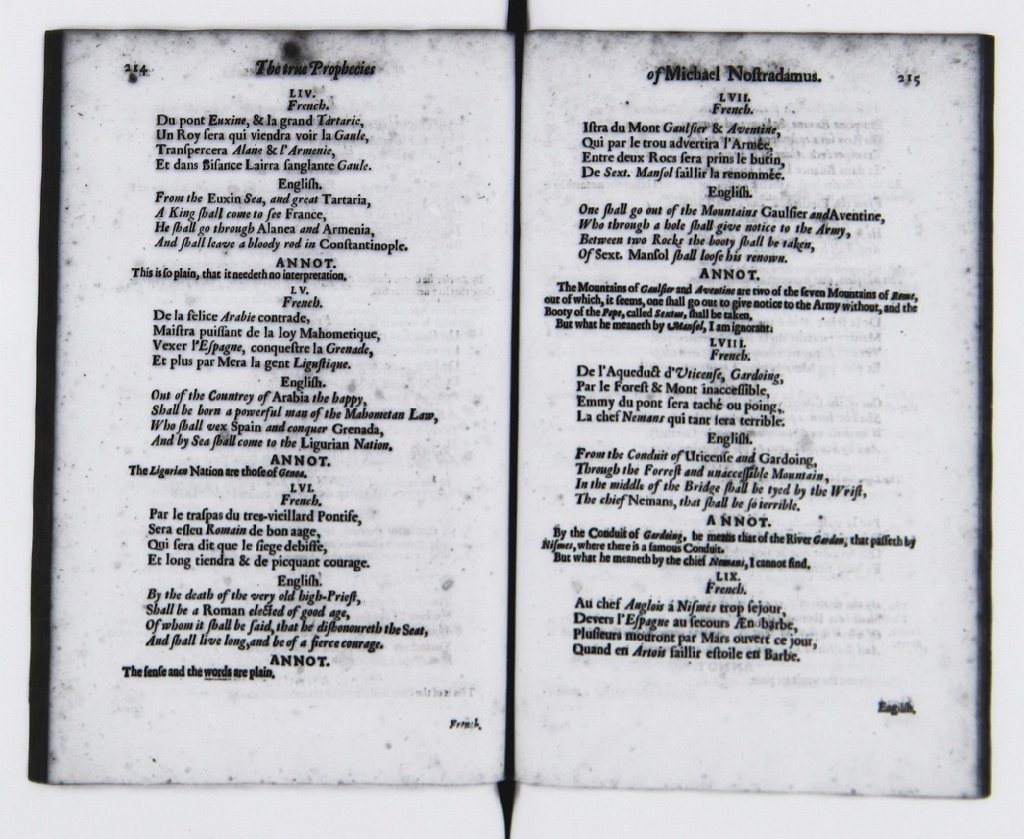 214
The true Prophecies
LIV.
French.
Du pont Euxine, & la grand Tartarie,
Un Roy ſera qui viendra voir la Gaule,
Tranſpercera Alane & l'Armenie,
Et dans Biſance Lairra ſanglante Gaule.
Engliſh.
From the Euxin Sea, and great Tartaria,
A King ſhall come to ſee France,
He ſhall go through Alanea and Armenia,
And ſhall leave a bloody rod in Conſtantinople.
ANNOT.
This is ſo plain, that it needeth no interpretation.
LV.
French.
De la felice Arabie contrade,
Naiſtra puiſſant de la loy Mahometique,
Vexer l'Eſpagne, conqueſtre la Grenade,
Et plus par Mera la gent Liguſtique.
Engliſh.
Out of the Countrey of Arabia the happy,
Shall be born a powerful man of the Mahometan Law,
Who ſhall vex Spain and conquer Grenada,
And by Sea ſhall come to the Ligurian Nation.
ANNOT.
The Ligurian Nation are thoſe of Genoa.
LVI.
French.
Par le traſpas du tres-vieillard Pontife,
Sera eſleu Romain de bon aage,
Qui ſera dit que le ſiege debiffe,
Et long tiendra & de picquant courage.
Engliſh.
By the death of the very old high-Prieſt,
Shall be a Roman elected of good age,
Of whom it ſhall be ſaid, that he diſhonoureth the Seat,
And ſhall live long, and be of a fierce courage.
ANNOT.
The ſenſe and the words are plain.
French.
of Michael Noſtradamus.
215
LVII.
French.
Iſtra du Mont Gaulſier & Aventine,
Qui par le trou advertira l'Armée,
Entre deux Rocs ſera prins le butin,
De Sext. Manſol faillir la renommée.
Engliſh.
One ſhall go out of the Mountains Gaulſier and Aventine,
Who through a hole ſhall give notice to the Army,
Between two Rocks the booty ſhall be taken,
Of Sext. Manſol ſhall looſe his renown.
ANNOT.
The Mountains of Gaulſier and Aventine are two of the ſeven Mountains of Rome,
out of which, it ſeems, one ſhall go out to give notice to the Army without, and the
Booty of the Pope, called Sextus, ſhall be taken.
But what he meaneth by Manſol, I am ignorant.
LVIII.
French.
De l'Aqueduct d'Uticenſe, Gardoing,
Par le Foreſt & Mont inacceſſible,
Emmy du pont ſera taché ou poing,
La chef Nemans qui tant ſera terrible.
Engliſh.
From the Conduit of Uticenſe and Gardoing,
Through the Forreſt and unacceſſible Mountain,
In the middle of the Bridge ſhall be tyed by the Wriſt,
The chief Nemans, that ſhall be ſo terrible.
ANNOT.
By the Conduit of Gardoing, he means that of the River Gardon, that paſſeth by
Niſmes, where there is a famous Conduit.
But what he meaneth by the chief Nemans, I cannot find.
LIX.
French.
Au chef Anglois á Niſmes trop ſejour,
Devers l'Eſpagne au ſecours Ænobarbe,
Pluſieurs mouront par Mars ouvert ce jour,
Quand en Artois faillir eſtoile en Barbe.
Engliſh.